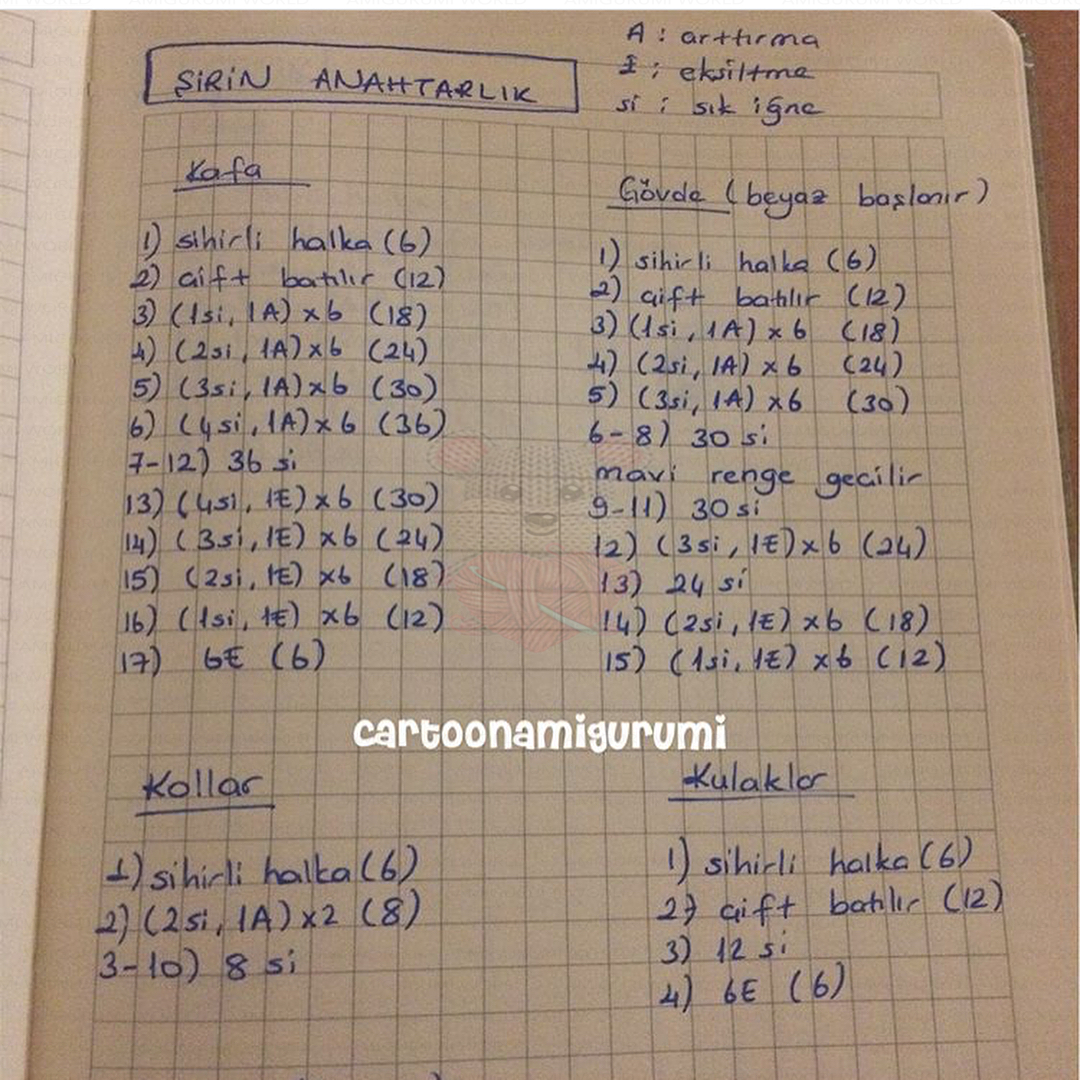 A : arttırma
E : eksiltme
si : sık iğne
ŞİRİN ANAHTARLIK
Kafa
1) sihirli halka (6)
2) çift batılır (12)
3) (1si, 1A) x6 (18)
4) (2si, 1A) x6 (24)
5) (3si, 1A) x6 (30)
6) (4si, 1A) x 6 (36)
7-12) 36 si
13) (4si, 1E) x6 (30)
14) (3si, 1E) x6 (24)
15) (2si, 1E) x6 (18)
16) (1si, 1E) x6 (12)
17) 6E (6)
Gövde (beyaz başlanır)
1) sihirli halka (6)
2) çift batılır (12)
3) (1si, 1A) x 6 (18)
4) (2si, 1A) x 6 (24)
5) (3si, 1A) x6 (30)
6-8) 30 si
mavi renge geçilir
9-11) 30 si
12) (3si, 1E) x 6 (24)
13) 24 si
14) (2si, 1E) x6 (18)
15) (1si, 1E) x6 (12)
cartoonamigurumi
Kollar
1) sihirli halka (6)
2) (2si, 1A) x2 (8)
3-10) 8 si
Kulaklar
1) sihirli halka (6)
2) çift batılır (12)
3) 12 si
4) 6E (6)